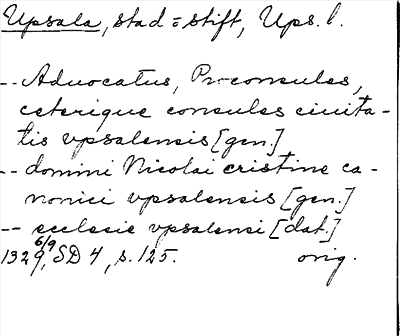 Upsala, stad = stift, Ups. l.
-- Aduocatus, Proconsules,
ceterique consules ciuita-
tis vpsalensis [gen.]
-- domini Nicolai cristine ca-
nonici vpsalensis [gen.]
-- ecclesie vpsalensi [dat.]
1329 6/9, SD 4, s. 125. orig.